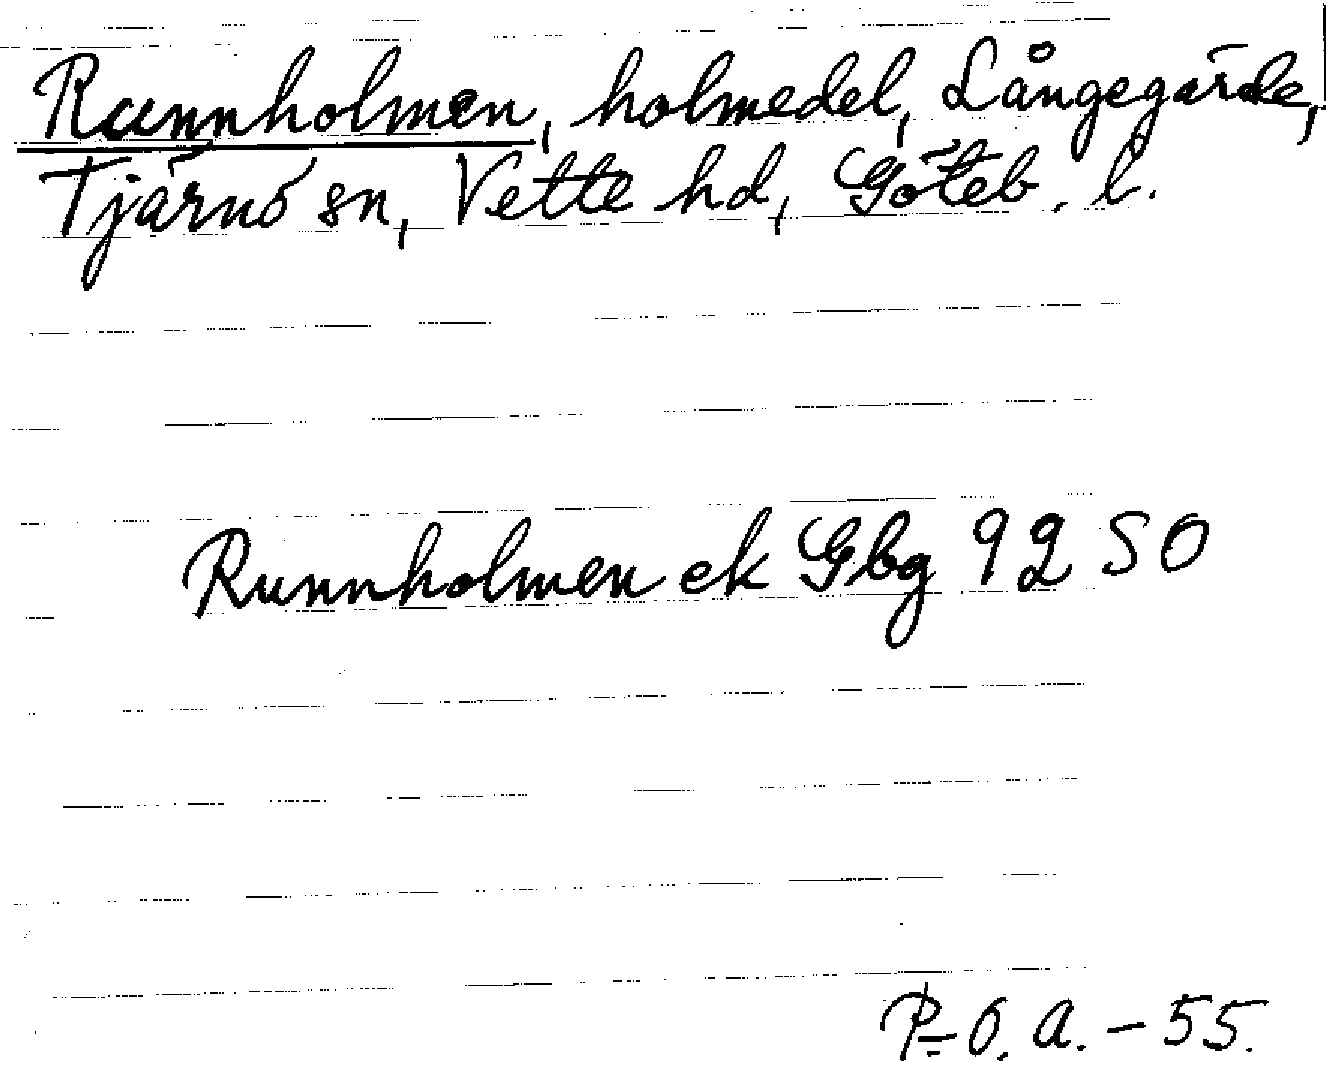 Runnholmen, holmedel, Långegärde,
Tjärnö sn, Vette hd, Göteb. l.
Runnholmen ek Gbg 92 SO
P-O. A. - 55.